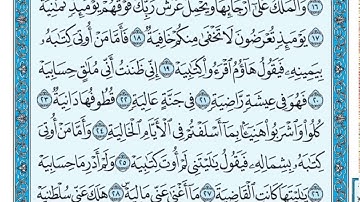 ١٦ وَٱلْمَلَكُ عَلَىٰٓ أَرْجَآئِهَا ۚ وَيَحْمِلُ عَرْشَ رَبِّكَ فَوْقَهُمْ يَوْمَئِذٍ ثَمَٰنِيَةٌ
١٧ يَوْمَئِذٍ تُعْرَضُونَ لَا تَخْفَىٰ مِنكُمْ خَافِيَةٌ ١٨ فَأَمَّا مَنْ أُوتِىَ كِتَٰبَهُۥ
بِيَمِينِهِۦ فَيَقُولُ هَآؤُمُ ٱقْرَءُوا۟ كِتَٰبِيَهْ ١٩ إِنِّى ظَنَنتُ أَنِّى مُلَٰقٍ حِسَابِيَهْ
٢٠ فَهُوَ فِى عِيشَةٍ رَّاضِيَةٍ ٢١ فِى جَنَّةٍ عَالِيَةٍ ٢٢ قُطُوفُهَا دَانِيَةٌ ٢٣
كُلُوا۟ وَٱشْرَبُوا۟ هَنِيٓـًٔۢا بِمَآ أَسْلَفْتُمْ فِى ٱلْأَيَّامِ ٱلْخَالِيَةِ ٢٤ وَأَمَّا مَنْ أُوتِىَ
كِتَٰبَهُۥ بِشِمَالِهِۦ فَيَقُولُ يَٰلَيْتَنِى لَمْ أُوتَ كِتَٰبِيَهْ ٢٥ وَلَمْ أَدْرِ مَا حِسَابِيَهْ
٢٦ يَٰلَيْتَهَا كَانَتِ ٱلْقَاضِيَةَ ٢٧ مَآ أَغْنَىٰ عَنِّى مَالِيَهْ ۜ ٢٨ هَلَكَ عَنِّى سُلْطَٰنِيَهْ